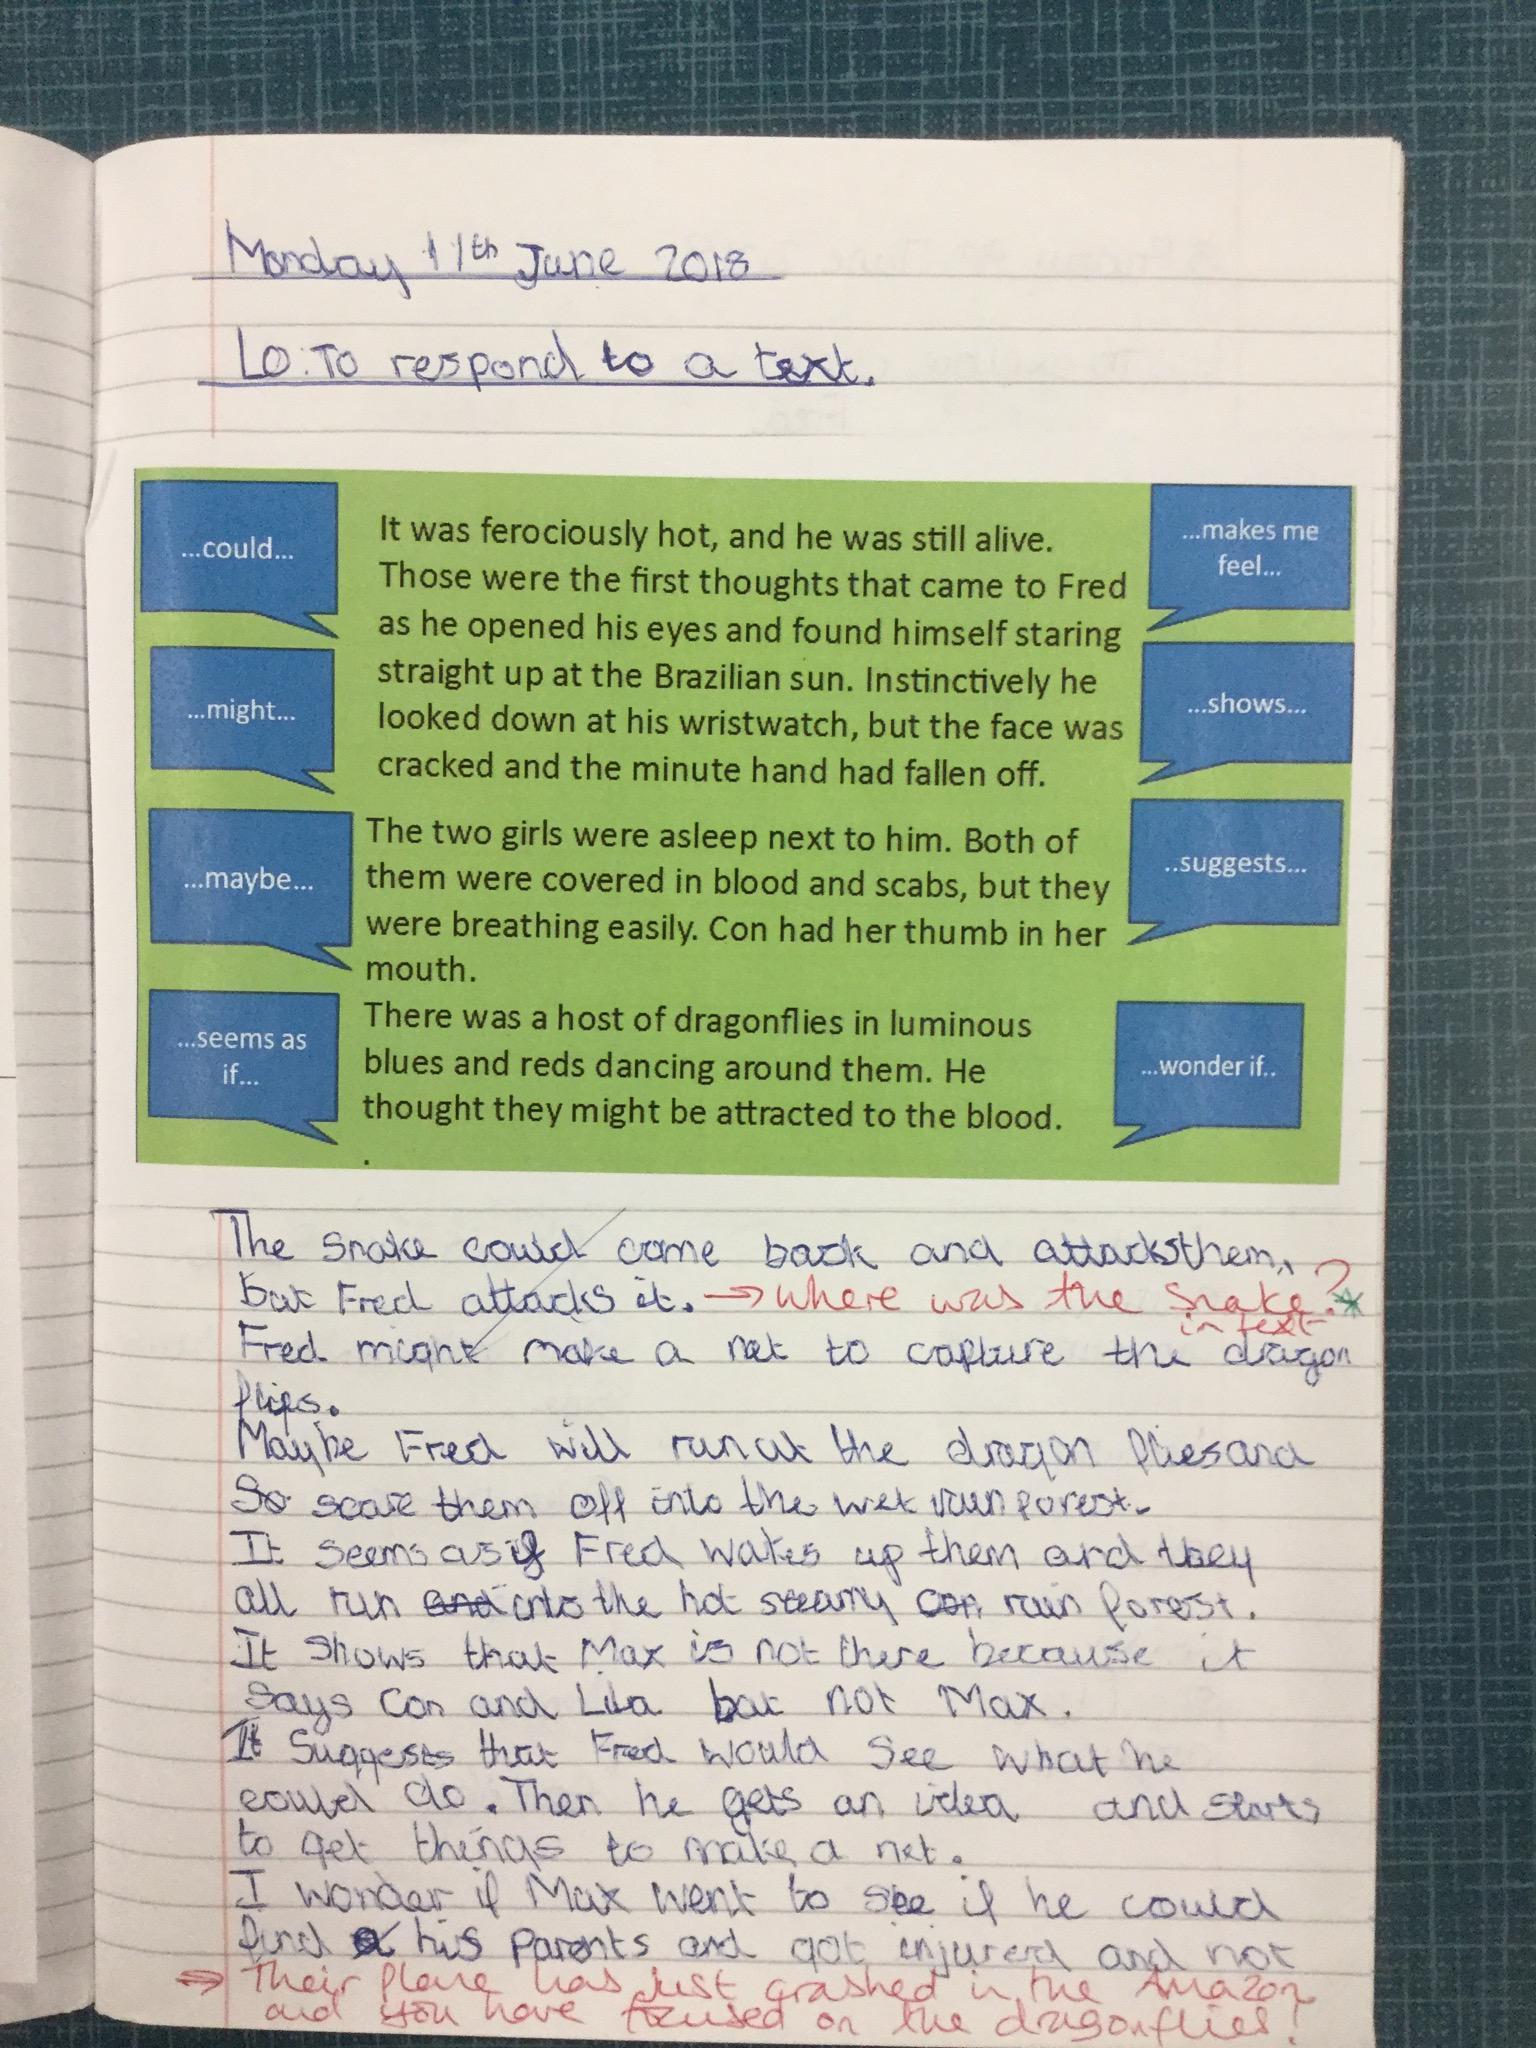 Monday 11th June 2018
LO: To respond to a text.
...could...
...might...
...maybe...
...seems as
if...
It was ferociously hot, and he was still alive.
Those were the first thoughts that came to Fred
as he opened his eyes and found himself staring
straight up at the Brazilian sun. Instinctively he
looked down at his wristwatch, but the face was
cracked and the minute hand had fallen off.
The two girls were asleep next to him. Both of
them were covered in blood and scabs, but they
were breathing easily. Con had her thumb in her
mouth.
There was a host of dragonflies in luminous
blues and reds dancing around them. He
thought they might be attracted to the blood.
.
...makes me
feel...
...shows...
..suggests...
...wonder if..
The snake could come back and attacks them,
but Fred attacks it. → where was the snake?*
in text
Fred might make a net to capture the dragon
flies.
Maybe Fred will run at the dragon flies and
So scare them off into the wet rain forest.
It seems as if Fred wakes up them and they
all run and into the hot steamy con rain forest.
It shows that Max is not there because it
says Con and Lila but not Max.
It suggests that Fred would see what he
could do. Then he gets an idea and starts
to get things to make a net.
I wonder if Max went to see if he could
find a his parents and got injured and not
⇒ Their plane has just crashed in the Amazon
and you have focused on the dragonflies!